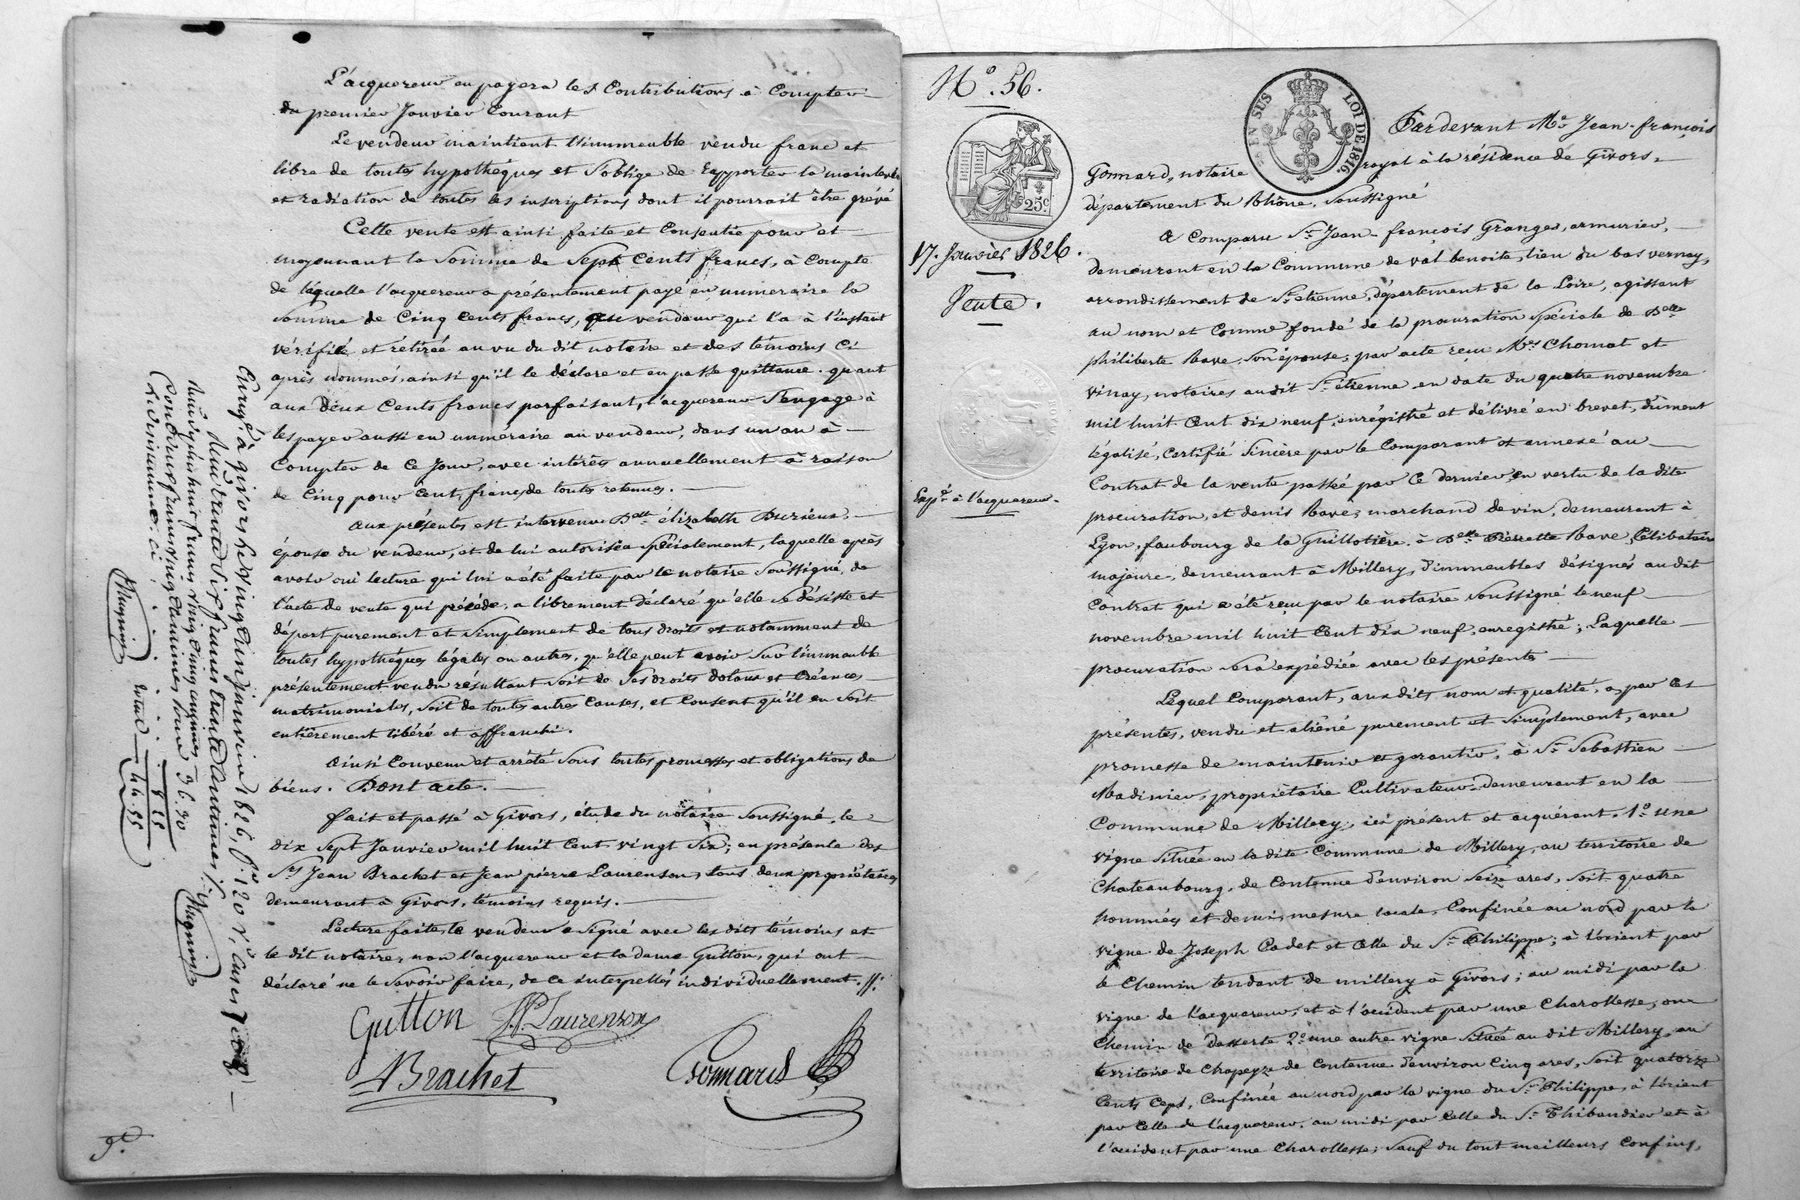 L'acquereur en payera les Contributions à Compter
du premier Janvier Courant
Le vendeur maintient l'immeuble vendu franc et
libre de toutes hypothéques et s'oblige de rapporter la mainlevée
et radiation de toutes les inscriptions dont il pourrait être grévé
Cette vente est ainsi faite et Consentie pour et
moyennant la Somme de Sept Cents francs, à Compte
de laquelle l'acquereur a présentement payé en numeraire la
Somme de Cinq Cents francs, au vendeur qui l'a à l'instant
vérifiée et rétirée au vu du dit notaire et des témoins ci
après nommés, ainsi qu'il le déclare et en passe quittance. quant
aux deux Cents francs parfaisant, l'acquereur S'engage à
les payer aussi en numeraire au vendeur, dans un an à
Compter de Ce Jour, avec intérêts annuellement à raison
de Cinq pour Cent, francs de toutes retenues.
aux présentes est intervenue Delle Élizabeth Durieux,
épouse du vendeur, et de lui autorisée Spécialement, laquelle après
avoir oui lecture qui lui a été faite par le notaire Soussigné, de
l'acte de vente qui précéde, a librement déclaré qu'elle se désiste et
départ purement et Simplement de tous droits et notamment de
toutes hypothéques légales ou autres, qu'elle peut avoir Sur l'immeuble
présentement vendu résultant soit de Ses droits dotaux et Créances
matrimoniales, soit de toutes autres Causes, et Consent qu'il en soit
entièrement libéré et affranchi.
Ainsi Convenu et arrêté Sous toutes promesses et obligations de
biens. Dont acte.
fait et passé à Givors, étude du notaire Soussigné, le
dix Sept Janvier mil huit Cent vingt Six; en présence des
Srs Jean Brachet et Jean pierre Laurenson, tous deux propriétaires
demeurant à Givors, témoins requis.
Lecture faite, le vendeur a Signé avec les dits témoins et
le dit notaire, non l'acquereur et la dame Gutton, qui ont
déclaré ne le Savoir faire, de ce interpellés individuellement.
Gutton JP Laurenson
Brachet Gonnard
Enregé à givors le vingt un janvier 1826, fo 120 Ro, Cases
Reçu trente Six francs trente Centimes
total 44.55
No. 56.
EN SUS LOI DE 1816.
25c
17. Janvier 1826.
Vente.
Expé à l'acquereur.
Pardevant Me Jean-françois
Gonnard, notaire royal à la résidence de Givors,
département du Rhône, Soussigné
A Comparu Sr Jean-françois Granger, armurier,
demeurant en la Commune de val benoite, lieu du bas vernay,
arrondissement de St. étienne, département de la Loire, agissant
au nom et Comme fondé de la procuration Spéciale de Delle
philiberte Rave, Son épouse, par acte reçu Mes Chomat et
vinay, notaires au dit St. étienne, en date du quatre novembre
mil huit Cent dix neuf, enregistré et délivré en brevet, dûment
légalisé, certifié Sincère par le Comparant et annexé au
Contrat de la vente passée par Ce dernier, en vertu de la dite
procuration, et denis Rave, marchand de vin, demeurant à
Lyon, faubourg de la Guillotière, à Delle Pierrette Rave, Célibataire
majeure, demeurant à Millery, d'immeubles désignés au dit
Contrat qui a été reçu par le notaire Soussigné le neuf
novembre mil huit Cent dix neuf, enregistré; Laquelle
procuration sera expédiée avec les présentes
Lequel Comparant, aux dits nom et qualité, a par ces
présentes, vendu et aliéné purement et Simplement, avec
promesse de maintenir et garantir, à Sr Sebastien
Madinier, propriètaire Cultivateur, demeurant en la
Commune de Millery, ici présent et acquérant. 1o une
vigne Située en la dite Commune de Millery, au territoire de
Chateaubourg, de Contenue d'environ Seize ares, soit quatre
hommées et demi, mesure locale, Confinée au nord par la
vigne de Joseph Cadet et Celle du Sr Philippe; à l'orient par
le Chemin tendant de millery à Givors; au midi par la
vigne de l'acquereur, et à l'occident par une Charollesse, ou
Chemin de desserte 2o une autre vigne Située au dit Millery, au
territoire de Chapeyze de Contenue d'environ Cinq ares, soit quatorze
Cents Ceps, Confinée au nord par la vigne du Sr Philippe, à l'orient
par Celle de l'acquereur, au midi par Celle du Sr Thibaudier et à
l'occident par une Charollesse; Sauf du tout meilleurs Confins,